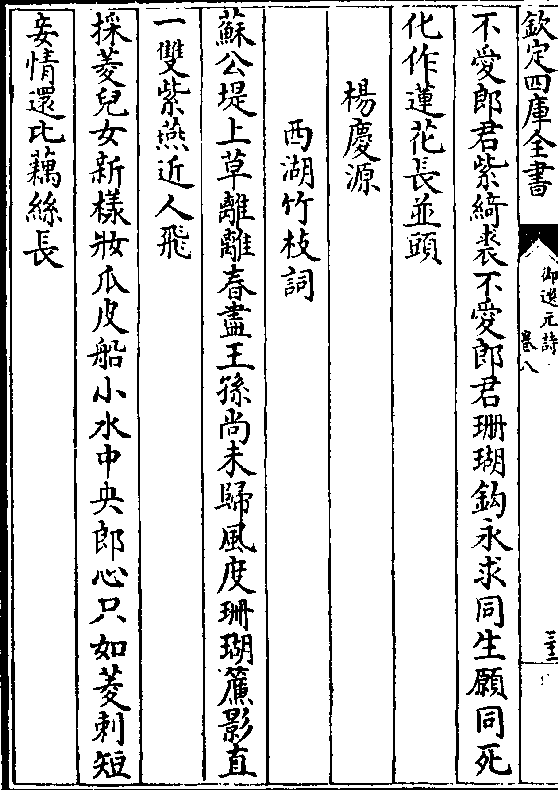 欽定四庫全書
御選元詩
卷八
三十三
不愛郎君紫綺裘不愛郎君珊瑚鈎永求同生願同死
化作蓮花長並頭
楊慶源
西湖竹枝詞
蘇公堤上草離離春盡王孫尚未歸風度珊瑚簾影直
一雙紫燕近人飛
採菱兒女新樣妝瓜皮船小水中央郎心只如菱刺短
妾情還比藕絲長